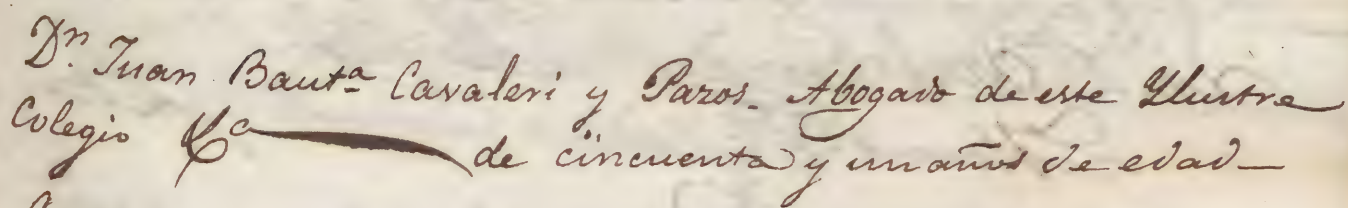 Dn. Juan Bauta Cavaleri y Pazos. Abogado de este Yllustre
Colegio &a de cincuenta y un años de edad